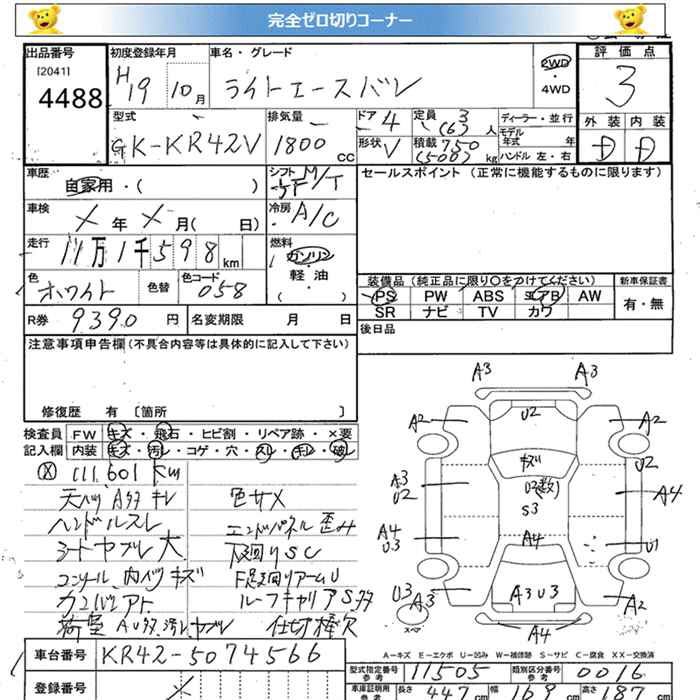 完全ゼロ切りコーナー
出品番号 初度登録年月 車名・グレード 2WD 評価点
[2041] H19 10月 ライトエースバン ・4WD 3
4488
型式 排気量 ドア 4 定員 3 ディーラー・並行 外装 内装
GK-KR42V 1800 CC (6)人 モデル年式 年 D D
形状 V 積載 750 (500)kg ハンドル 左・右
車歴 自家用・( ) シフト M/T セールスポイント(正常に機能するものに限ります)
車検 X 年 X 月( 日) 冷房 A/C
走行 11万1千598km 燃料 ガソリン
軽・油
( ・ )
色 ホワイト 色替 色コード 058
装備品(純正品に限り○をつけてください) 新車保証書
PS PW ABS エアB AW 有・無
SR ナビ TV カワ
R券 9390 円 名変期限 月 日 後日品
注意事項申告欄(不具合内容等は具体的に記入して下さい)
修復歴 有 〔箇所 〕
検査員 FW キズ・飛石・ヒビ割・リペア跡・×要
記入欄 内装 キズ・汚レ・コゲ・穴・スレ・チレ・破レ
Ⓧ 111.601km
天バリ Aタタ キレ 色サメ
ハンドルスレ エンドパネル 歪み
シートヤブレ大 下回りSC
コンソール、内バリキズ F足回りアームU
カンバンアト ルーフキャリアSタタ
荷室 Aリタタ 汚レ ヤブレ 仕切棒欠
A3 A3
A2 U2 A2
キズ U2
A3 U2(数) A4
U2 S3
A4 A4 U1
U3
U3 A3 A3U3 A2
スペア A4
A-キズ E-エクボ U-凹み W-補修跡 S-サビ C-腐食 XX-交換済
車台番号 KR42-5074566
型式指定番号 参考 11505 類別区分番号 参考 0016
登録番号 X
車庫証明用 参考 長さ 447cm 幅 169cm 高さ 187cm